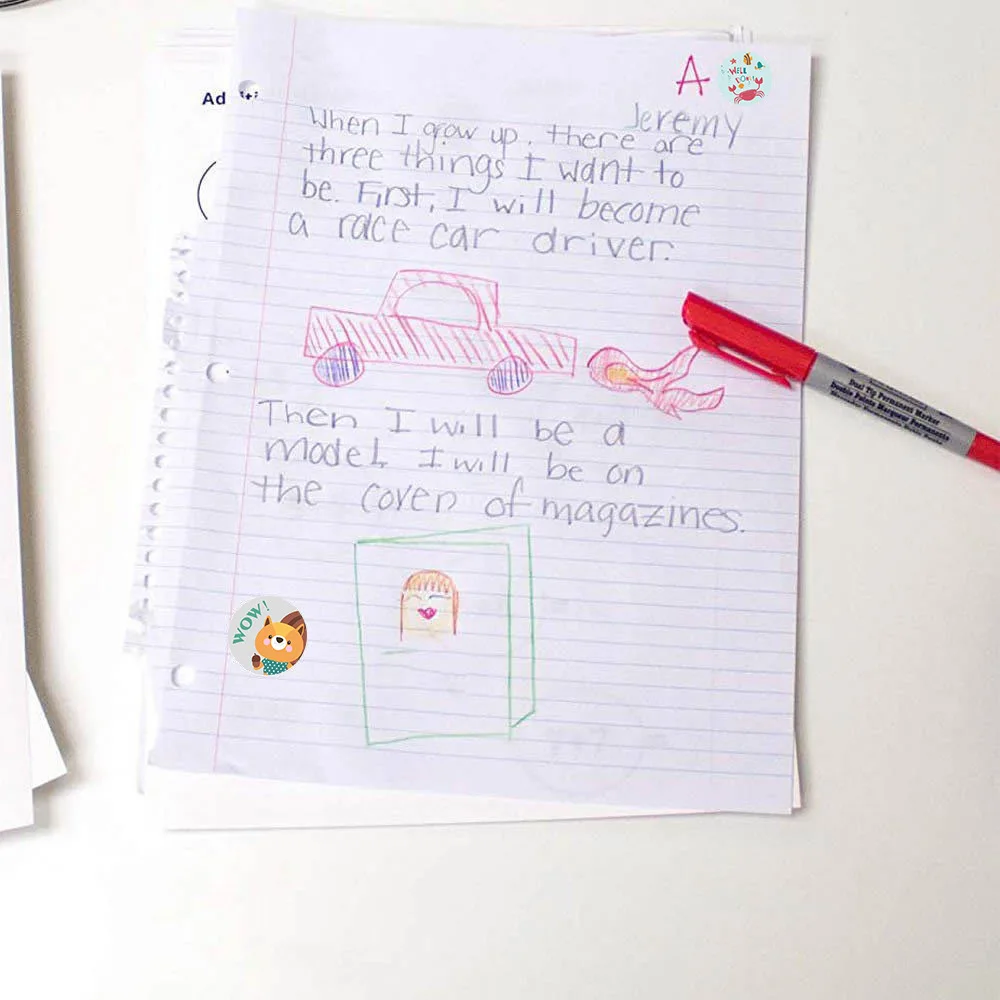 A
WELL
DONE!
Jeremy
Ad
When I grow up, there are
three things I want to
be. First, I will become
a race car driver.
Then I will be a
model. I will be on
the cover of magazines.
WOW!
Dual Tip Permanent Marker